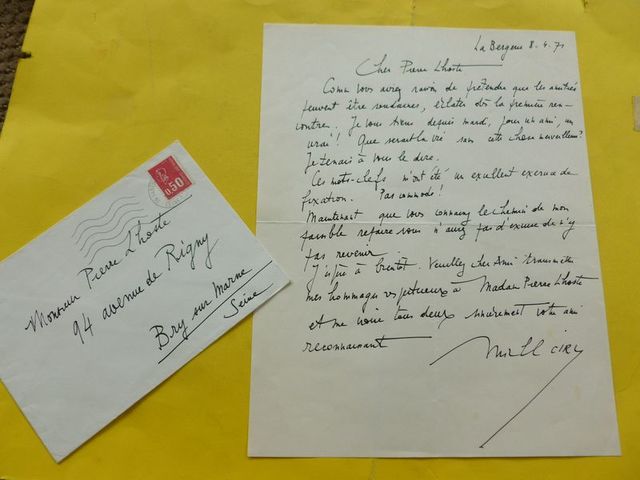 La Bergerie 8.4.71
Cher Pierre Lhoste
Comme vous avez raison de prétendre que les amitiés
peuvent être soudaines, éclater dès la première ren-
contre. Je vous tiens depuis mardi, pour un ami, un
vrai! Que serait la vie sans cette chose merveilleuse?
Je tenais à vous le dire.
Ces mots-clefs m'ont été un excellent exercice de
fixation. Pas commode!
Maintenant que vous connaissez le chemin de mon
paisible repaire vous n'aurez pas d'excuse de n'y
pas revenir.
Jusqu'à bientôt. Veuillez cher Ami transmettre
mes hommages respectueux à Madame Pierre Lhoste
et me croire tous deux sincèrement votre ami
reconnaissant
CIRY
0,50
Monsieur Pierre Lhoste
94 avenue de Rigny
Bry sur Marne
Seine